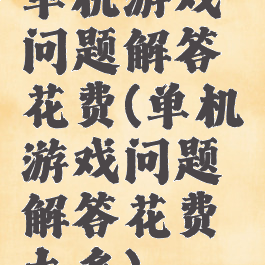 单机游戏
问题解答
花费(单机
游戏问题
解答花费